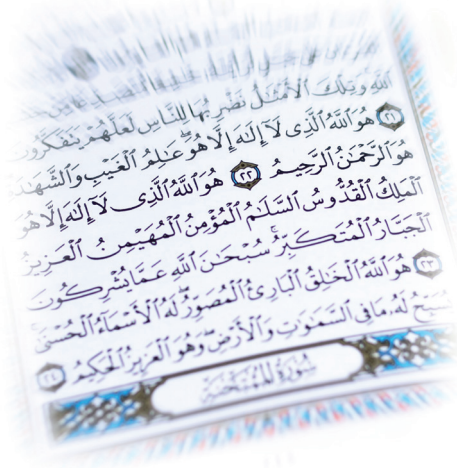 اللَّهِ وَتِلْكَ الْأَمْثَالُ نَضْرِبُهَا لِلنَّاسِ لَعَلَّهُمْ يَتَفَكَّرُونَ
٢١ هُوَ اللَّهُ الَّذِي لَا إِلَٰهَ إِلَّا هُوَ عَالِمُ الْغَيْبِ وَالشَّهَادَةِ
هُوَ الرَّحْمَٰنُ الرَّحِيمُ ٢٢ هُوَ اللَّهُ الَّذِي لَا إِلَٰهَ إِلَّا هُوَ
الْمَلِكُ الْقُدُّوسُ السَّلَامُ الْمُؤْمِنُ الْمُهَيْمِنُ الْعَزِيزُ
الْجَبَّارُ الْمُتَكَبِّرُ سُبْحَانَ اللَّهِ عَمَّا يُشْرِكُونَ
٢٣ هُوَ اللَّهُ الْخَالِقُ الْبَارِئُ الْمُصَوِّرُ لَهُ الْأَسْمَاءُ الْحُسْنَىٰ
يُسَبِّحُ لَهُ مَا فِي السَّمَاوَاتِ وَالْأَرْضِ وَهُوَ الْعَزِيزُ الْحَكِيمُ ٢٤
سُورَةُ الْمُمْتَحَنَةِ